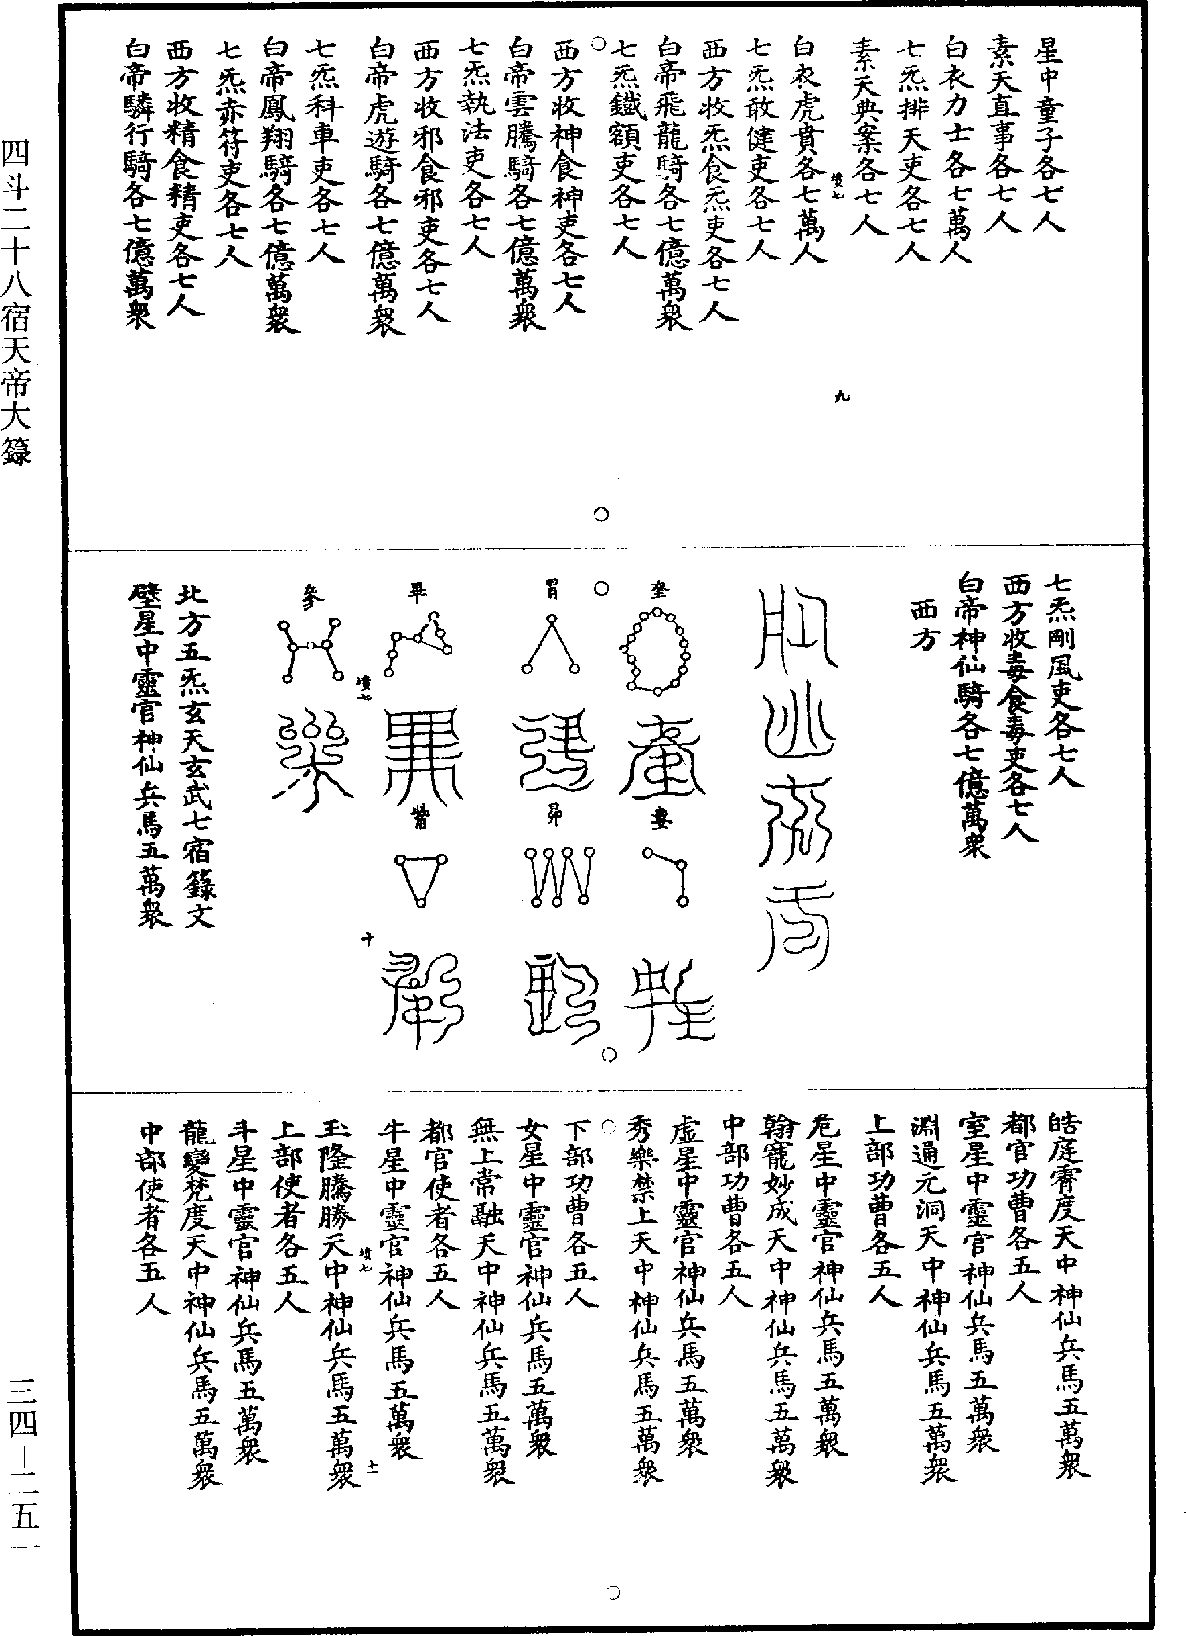 四斗二十八宿天帝大籙
三四—二五一
星中童子各七人
素天直事各七人
白衣力士各七萬人
七炁排天吏各七人
素天典案各七人
九
白衣虎賁各七萬人
七炁敢健吏各七人
西方收炁食炁吏各七人
白帝飛龍騎各七億萬衆
七炁鐵額吏各七人
西方收神食神吏各七人
白帝雲騰騎各七億萬衆
七炁執法吏各七人
西方收邪食邪吏各七人
白帝虎遊騎各七億萬衆
七炁科車吏各七人
白帝鳳翔騎各七億萬衆
七炁赤符吏各七人
西方收精食精吏各七人
白帝驎行騎各七億萬衆
七炁剛風吏各七人
西方收毒食毒吏各七人
白帝神仙騎各七億萬衆
西方
奎
婁
胃
昴
畢
觜
十
參
北方五炁玄天玄武七宿籙文
壁星中靈官神仙兵馬五萬衆
皓庭霄度天中神仙兵馬五萬衆
都官功曹各五人
室星中靈官神仙兵馬五萬衆
淵通元洞天中神仙兵馬五萬衆
上部功曹各五人
危星中靈官神仙兵馬五萬衆
翰寵妙成天中神仙兵馬五萬衆
中部功曹各五人
虛星中靈官神仙兵馬五萬衆
秀樂禁上天中神仙兵馬五萬衆
下部功曹各五人
女星中靈官神仙兵馬五萬衆
無上常融天中神仙兵馬五萬衆
都官使者各五人
牛星中靈官神仙兵馬五萬衆
十一
玉隆騰勝天中神仙兵馬五萬衆
上部使者各五人
斗星中靈官神仙兵馬五萬衆
龍變梵度天中神仙兵馬五萬衆
中部使者各五人